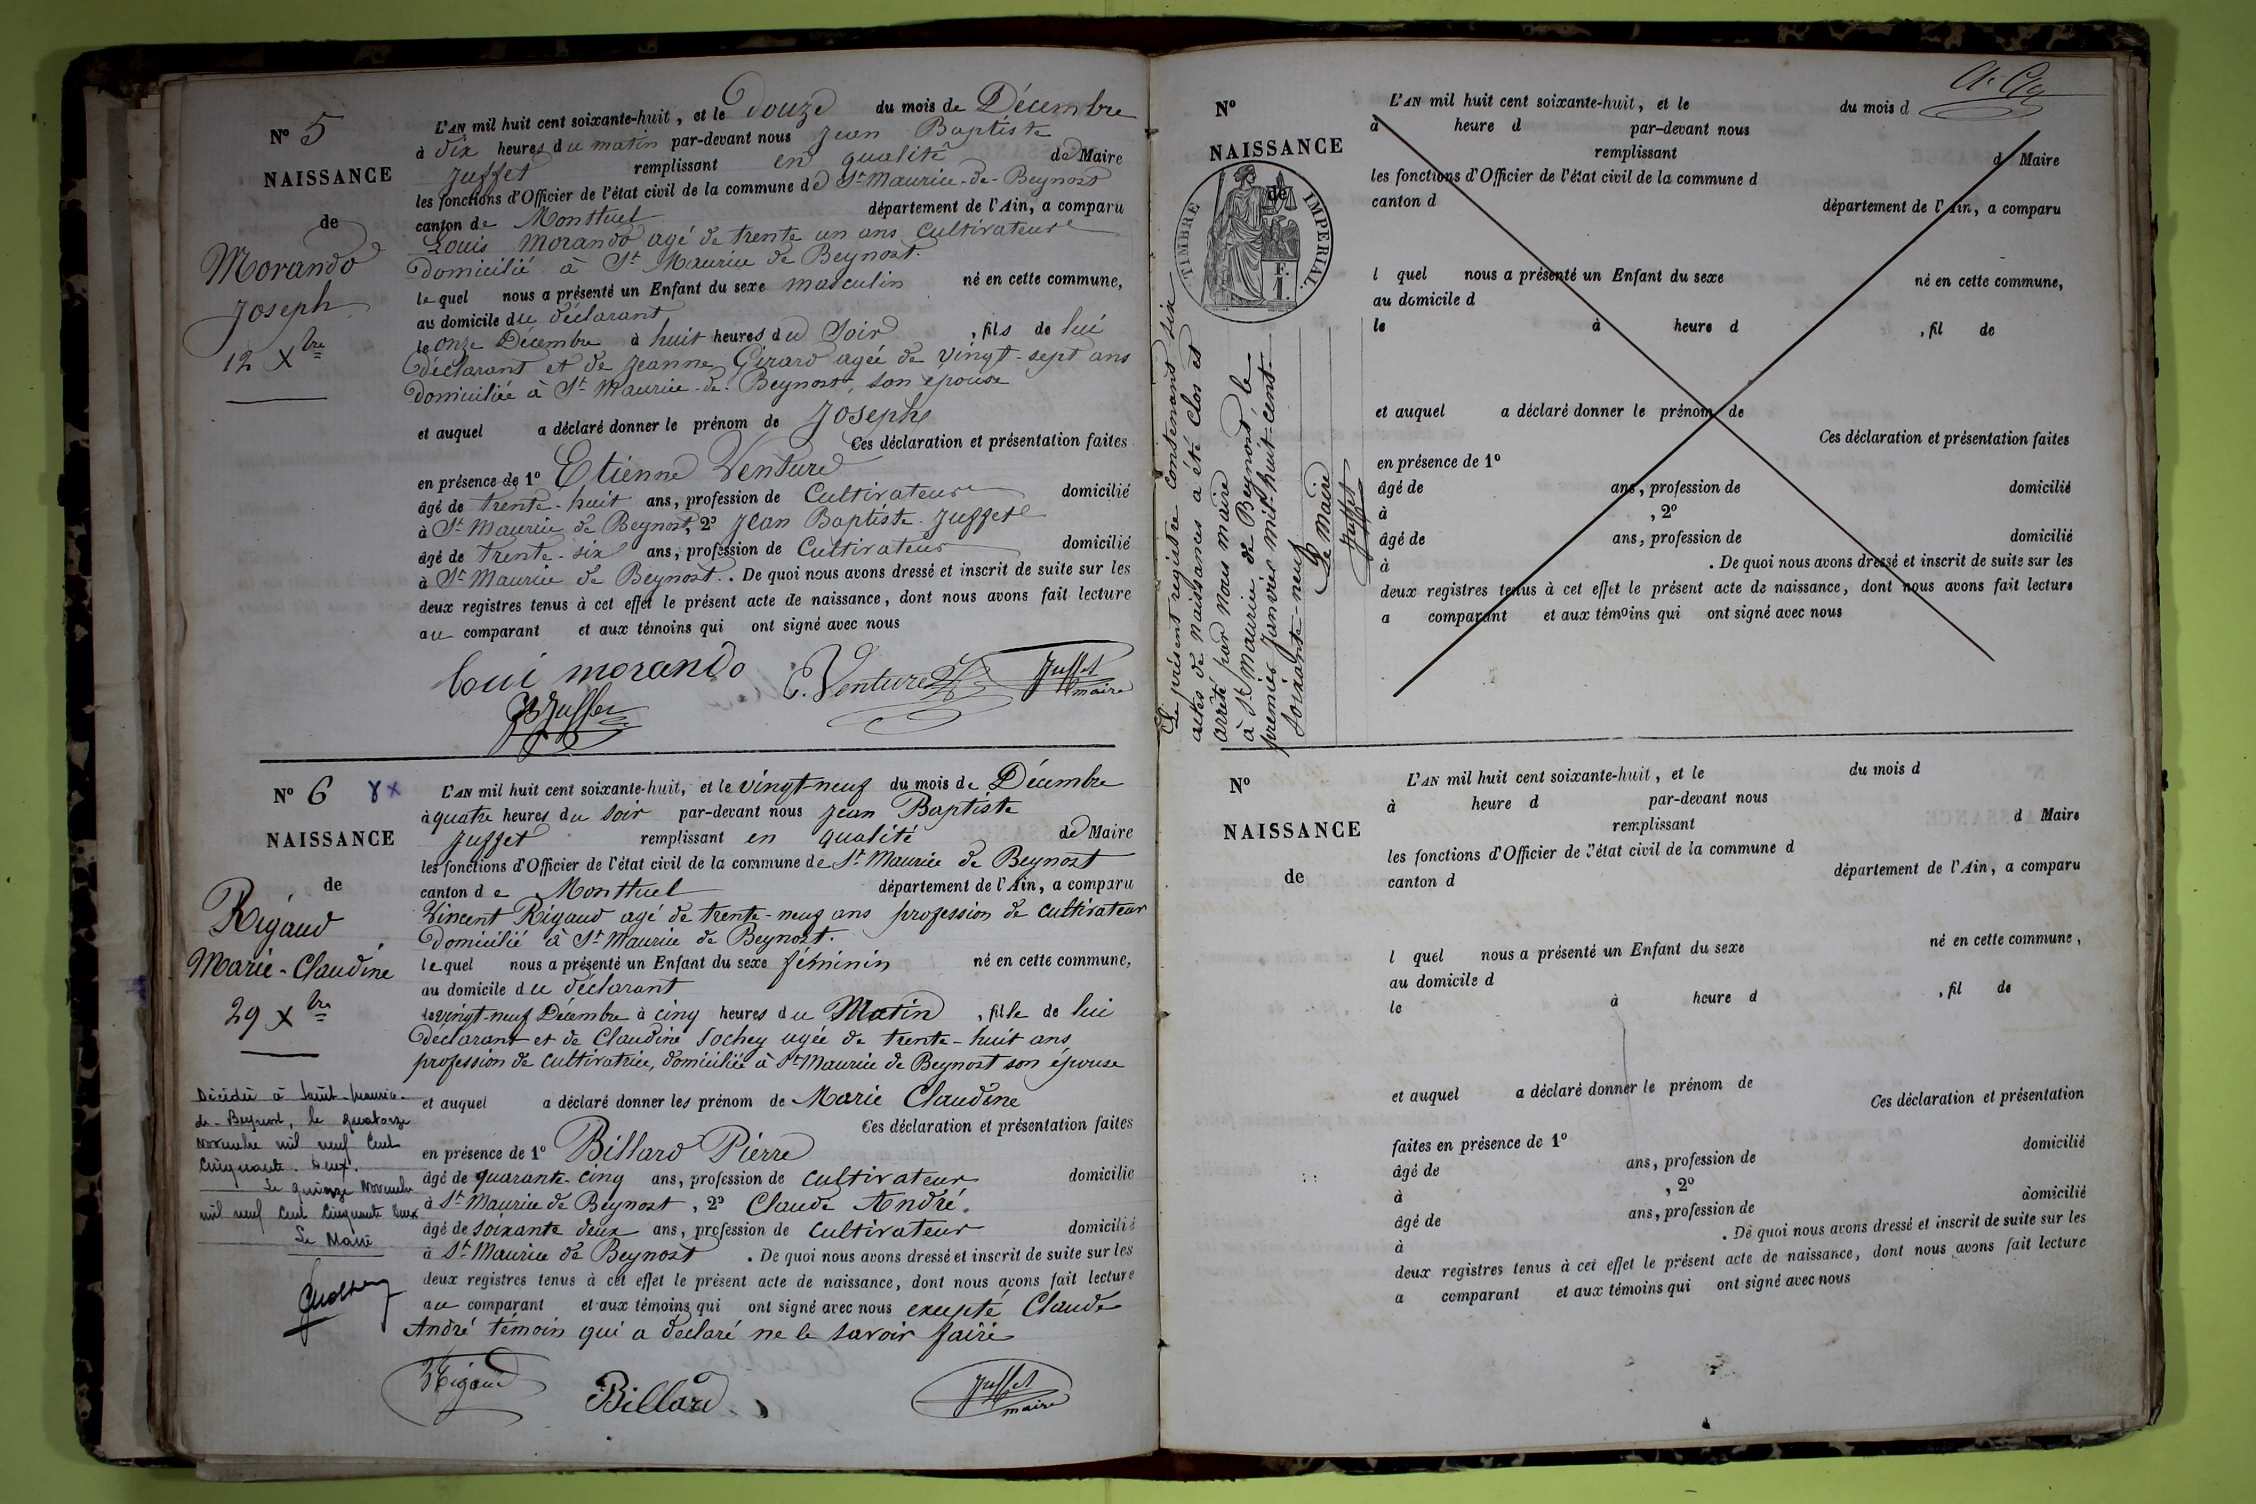 N° 5
NAISSANCE
de
Morand
Joseph
12 Xbre
L'AN mil huit cent soixante-huit, et le douze du mois de Décembre
à dix heures du matin par-devant nous Jean Baptiste
Juffet remplissant en qualité de Maire
les fonctions d'Officier de l'état civil de la commune de St Maurice-de-Beynost
canton de Montluel département de l'Ain, a comparu
Louis Morand agé de trente un ans Cultivateur
Domicilié à St Maurice de Beynost.
lequel nous a présenté un Enfant du sexe masculin né en cette commune,
au domicile du déclarant
le onze Décembre à huit heures du Soir, fils de lui
Déclarant et de Jeanne Girard agée de vingt-sept ans
Domiciliée à St Maurice-de-Beynost, son épouse
et auquel a déclaré donner le prénom de Joseph
Ces déclaration et présentation faites
en présence de 1° Etienne Venture
âgé de trente-huit ans, profession de Cultivateur domicilié
à St Maurice de Beynost, 2° Jean Baptiste Juffet
âgé de trente-six ans, profession de Cultivateur domicilié
à St Maurice de Beynost. . De quoi nous avons dressé et inscrit de suite sur les
deux registres tenus à cet effet le présent acte de naissance, dont nous avons fait lecture
au comparant et aux témoins qui ont signé avec nous
Loui morand E. Venture Juffet
maire
JB Juffet
N° 6 8 x
NAISSANCE
de
Rigaud
Marie-Claudine
29 Xbre
Décédée à Saint-Maurice-
de-Beynost, le quatorze
Novembre mil neuf Cent
Cinquante-Deux.
Le quinze Novembre
mil neuf Cent Cinquante Deux
Le Maire
L'AN mil huit cent soixante-huit, et le vingt-neuf du mois de Décembre
à quatre heures du soir par-devant nous Jean Baptiste
Juffet remplissant en qualité de Maire
les fonctions d'Officier de l'état civil de la commune de St Maurice de Beynost
canton de Montluel département de l'Ain, a comparu
Vincent Rigaud agé de trente-neuf ans profession de cultivateur
Domicilié à St Maurice de Beynost.
lequel nous a présenté un Enfant du sexe féminin né en cette commune,
au domicile du déclarant
le vingt-neuf Décembre à cinq heures du Matin, fille de lui
Déclarant et de Claudine Sochey agée de trente-huit ans
profession de cultivatrice, domiciliée à St Maurice de Beynost son épouse
et auquel a déclaré donner les prénom de Marie Claudine
Ces déclaration et présentation faites
en présence de 1° Billard Pierre
âgé de quarante-cinq ans, profession de cultivateur domicilié
à St Maurice de Beynost, 2° Claude André.
âgé de soixante deux ans, profession de cultivateur domicilié
à St Maurice de Beynost . De quoi nous avons dressé et inscrit de suite sur les
deux registres tenus à cet effet le présent acte de naissance, dont nous avons fait lecture
au comparant et aux témoins qui ont signé avec nous excepté Claude
André témoin qui a déclaré ne le savoir faire
Rigaud Billard Juffet
maire
N°
NAISSANCE
de
TIMBRE IMPERIAL.
F. I.
Le présent registre contenant six
actes de naissances a été clos et
arrêté par nous maire
à St Maurice de Beynost le
premier Janvier mil huit-cent-
soixante-neuf
Le Maire
Juffet
L'AN mil huit cent soixante-huit, et le du mois d
à heure d par-devant nous
remplissant d Maire
les fonctions d'Officier de l'état civil de la commune d
canton d département de l'Ain, a comparu
l quel nous a présenté un Enfant du sexe né en cette commune,
au domicile d
le à heure d , fil de
et auquel a déclaré donner le prénom de
Ces déclaration et présentation faites
en présence de 1°
âgé de ans, profession de domicilié
à , 2°
âgé de ans, profession de domicilié
à . De quoi nous avons dressé et inscrit de suite sur les
deux registres tenus à cet effet le présent acte de naissance, dont nous avons fait lecture
a comparant et aux témoins qui ont signé avec nous
N°
NAISSANCE
de
L'AN mil huit cent soixante-huit, et le du mois d
à heure d par-devant nous
remplissant d Maire
les fonctions d'Officier de l'état civil de la commune d
canton d département de l'Ain, a comparu
l quel nous a présenté un Enfant du sexe né en cette commune,
au domicile d
le à heure d , fil de
et auquel a déclaré donner le prénom de
Ces déclaration et présentation
faites en présence de 1° domicilié
âgé de ans, profession de
à , 2°
âgé de ans, profession de domicilié
à . De quoi nous avons dressé et inscrit de suite sur les
deux registres tenus à cet effet le présent acte de naissance, dont nous avons fait lecture
a comparant et aux témoins qui ont signé avec nous